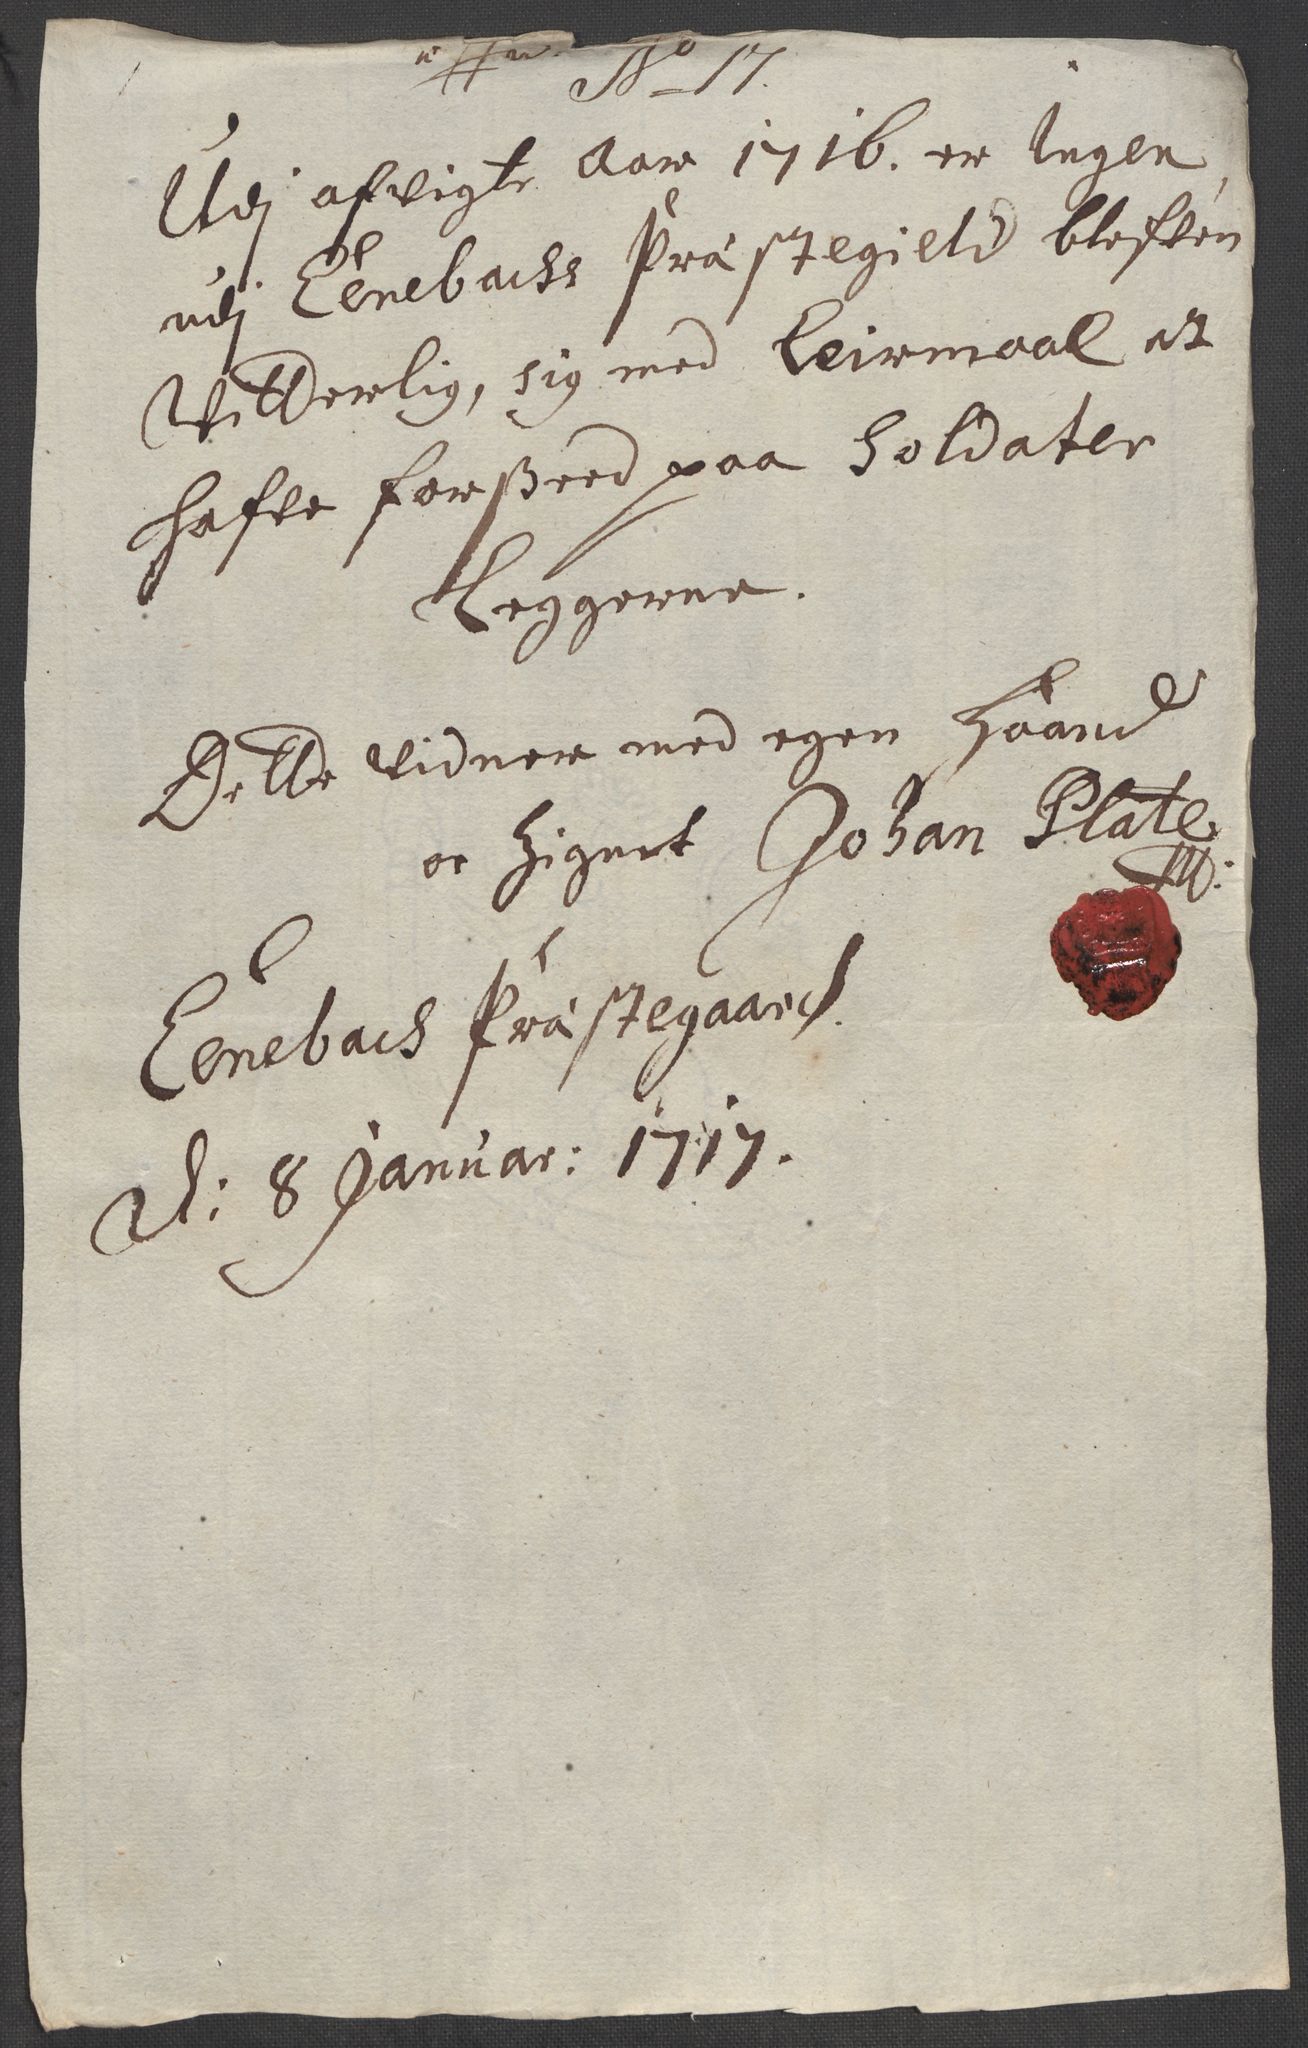 No 17.
Udj afvigte Aar 1716. er Ingen
udj Eenebachs Prästegield blefven
Vitterlig, sig med Leirmaal at
hafve forßeed paa Soldater
Leggerne.
Dette vidner med egen Haand
oc Zignet Johan Plate
Eenebach Prästegaard
d: 8 Januar: 1717.